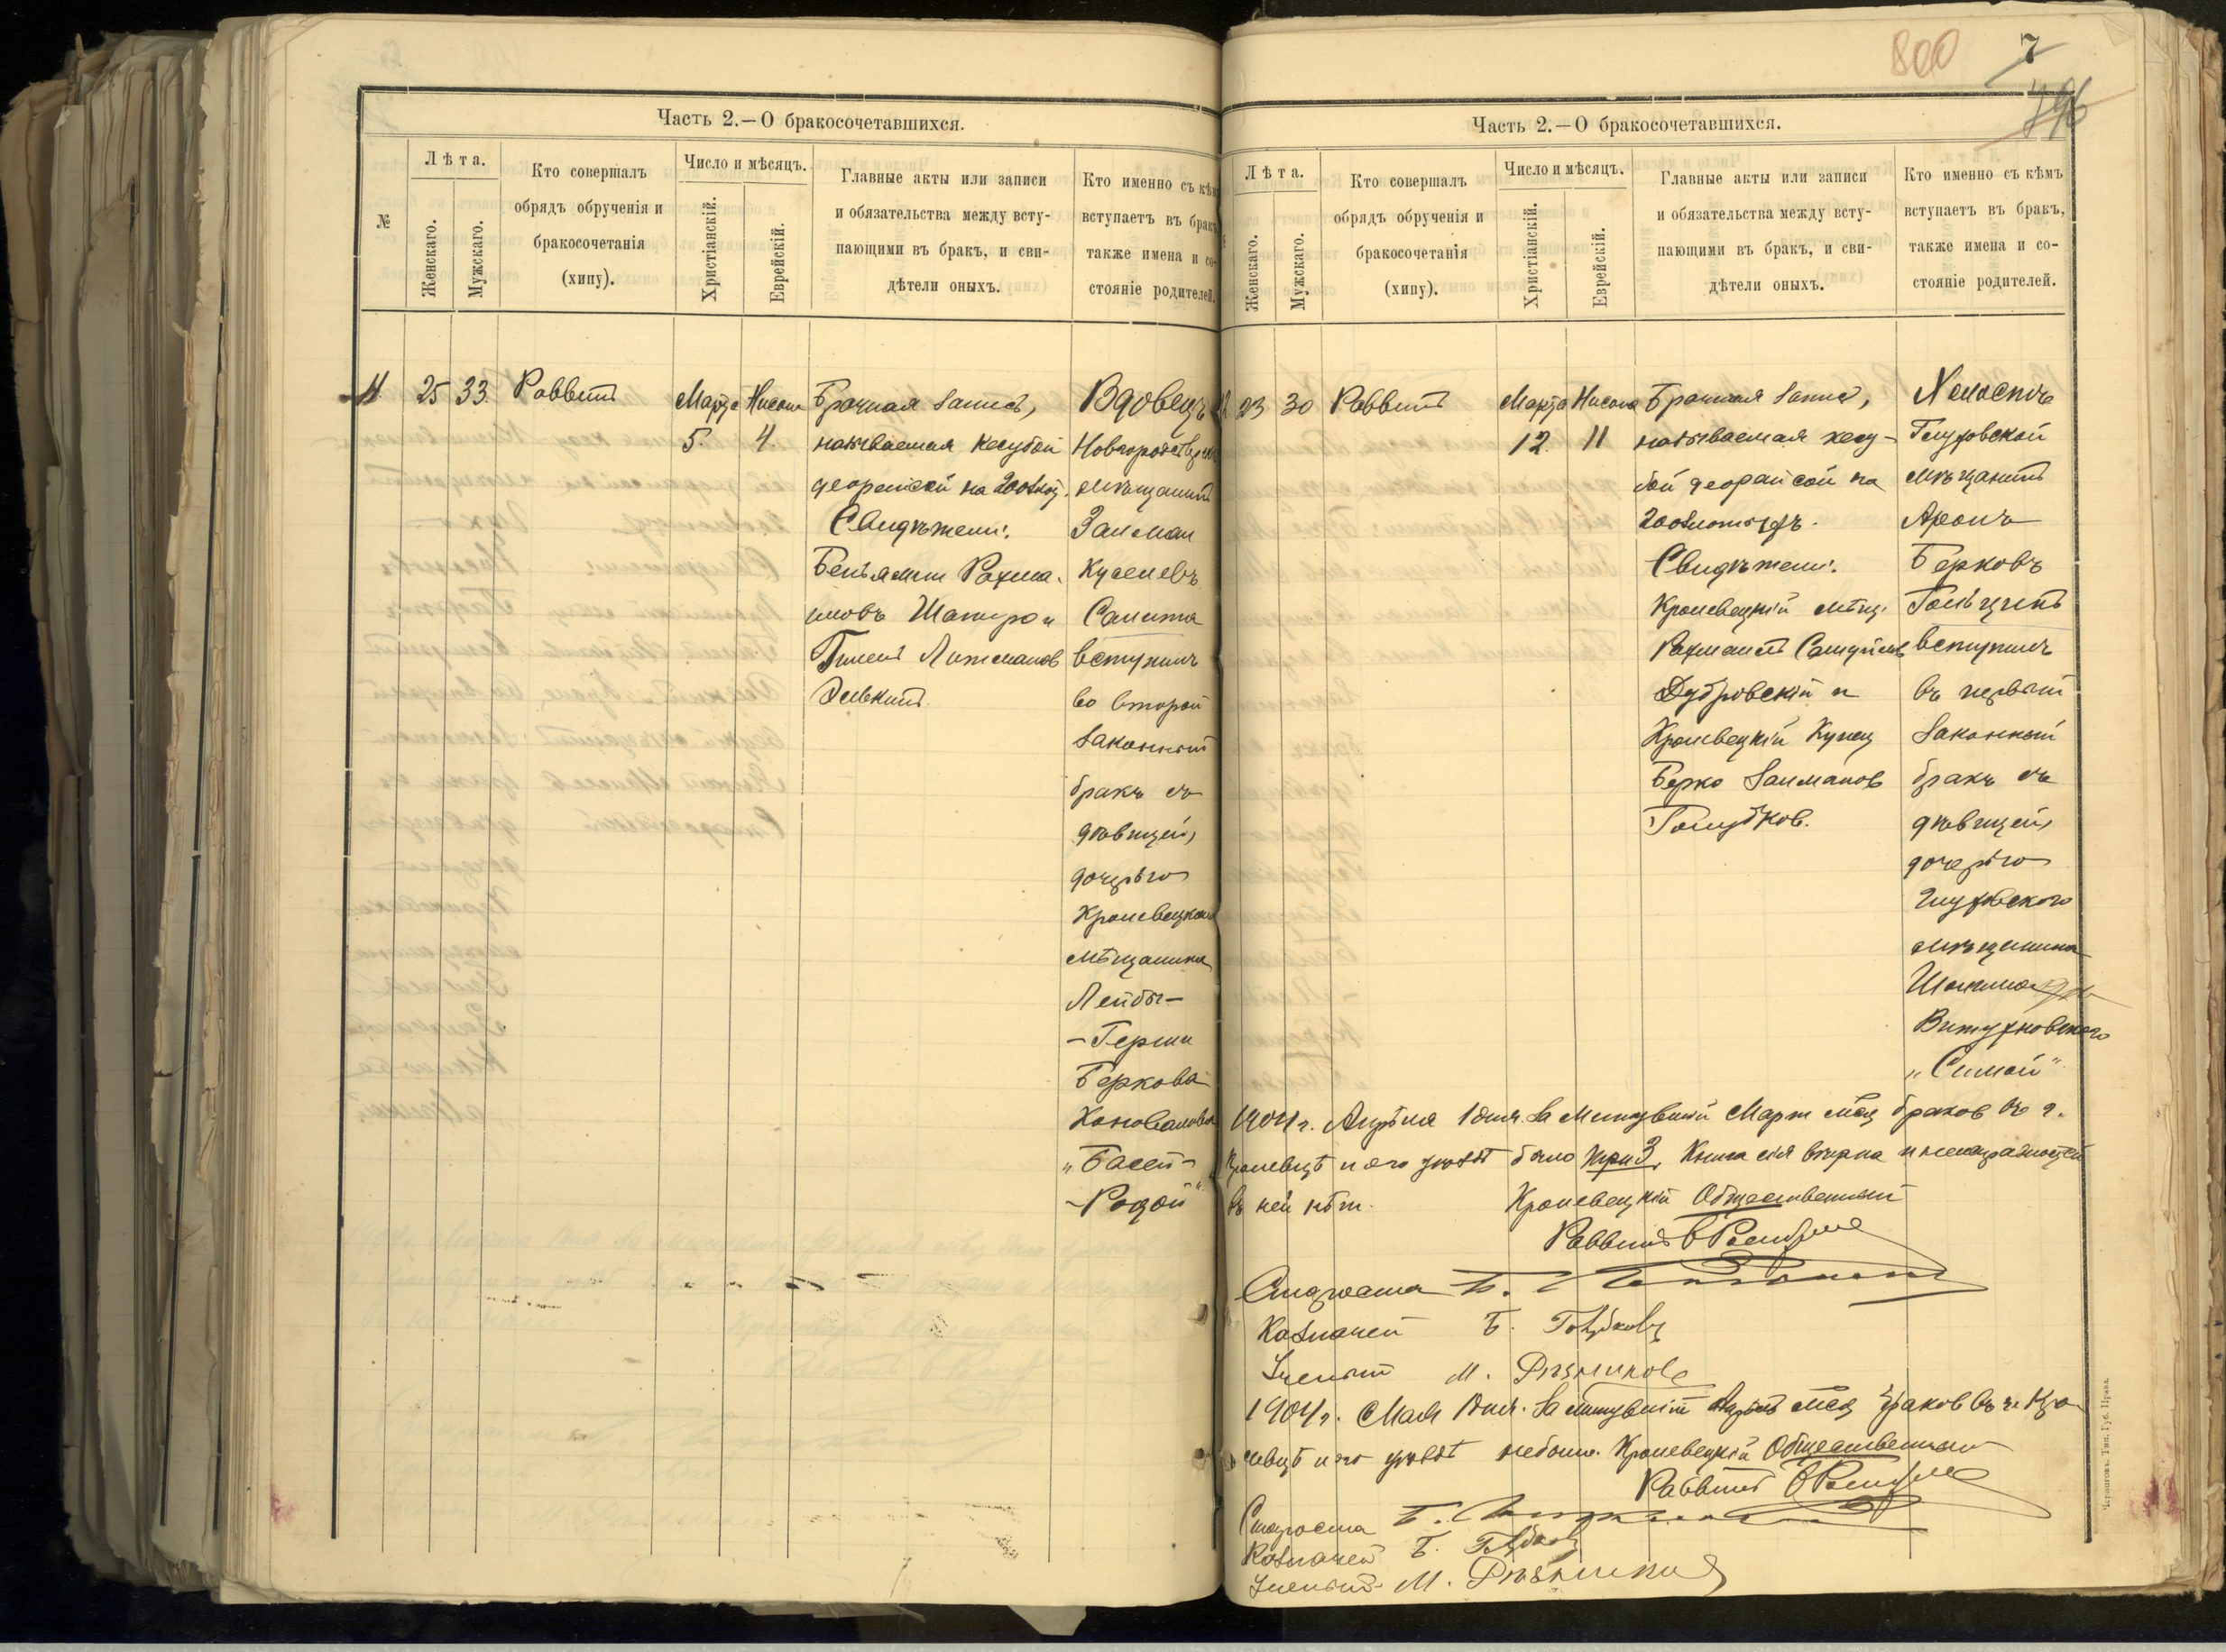 Часть 2.—О бракосочетавшихся.
№
Лѣта.
Женскаго.
Мужскаго.
Кто совершалъ
обрядъ обрученія и
бракосочетанія
(хипу).
Число и мѣсяцъ.
Христіанскій.
Еврейскій.
Главные акты или записи
и обязательства между всту-
пающими въ бракъ, и сви-
дѣтели оныхъ.
Кто именно съ кѣмъ
вступаетъ въ бракъ
также имена и со-
стояніе родителей.
4.
25
33.
Раввинъ
Марта
5.
Нисона
4.
Брачная запись,
называемая кесубой
деорайсой на 200 злот.
Свидѣтели:
Беньямин Рахма-
иловъ Шапиро и
Гилель Литманов
Элькинъ.
Вдовецъ
мѣщанинъ
Залман
Куселевъ
Салита
вступилъ
во второй
законный
бракъ съ
дѣвицей,
дочерью
Кролевецкаго
мѣщанина
Лейбы-
-Герши
Беркова
Коновалова
„Басей-
-Родой“
800
7
796
Часть 2.—О бракосочетавшихся.
Лѣта.
Женскаго.
Мужскаго.
Кто совершалъ
обрядъ обрученія и
бракосочетанія
(хипу).
Число и мѣсяцъ.
Христіанскій.
Еврейскій.
Главные акты или записи
и обязательства между всту-
пающими въ бракъ, и сви-
дѣтели оныхъ.
Кто именно съ кѣмъ
вступаетъ въ бракъ,
также имена и со-
стояніе родителей.
23
30
Раввинъ
Марта
12.
Нисона
11
Брачная запись,
называемая кесу-
бой деорайсой на
200 злотыхъ.
Свидѣтели:
Кролевецкій мѣщ.
Рахмаилъ Самуйлов
Дубровскій и
Кролевецкій Купец
Берко Залманов
Голубков.
Холостъ
Глуховской
мѣщанинъ
Аронъ
Берковъ
Гольцинъ
вступилъ
въ первый
законный
бракъ съ
дѣвицей,
дочерью
Глуховского
мѣщанина
„Симой“
1904 г. Апрѣля 1 дня. За минувшій Март мѣс. браков въ г.
Кролевцѣ и его уѣздѣ было три 3. Книга сія вѣрна и
въ ней нѣт.
Кролевецкій Общественный
Раввинъ
Староста
Казначей Б. Голубковъ
Ученый М. Рѣзниковъ
1904 г. Мая 1 дня. За минувшій Апрѣль мѣс. браков въ г. Кро-
левцѣ и его уѣздѣ небыло. Кролевецкій Общественный
Раввинъ
Староста
Казначей Б.
Ученый М. Рѣзниковъ
Черниговъ. Тип. Губ. Правл.